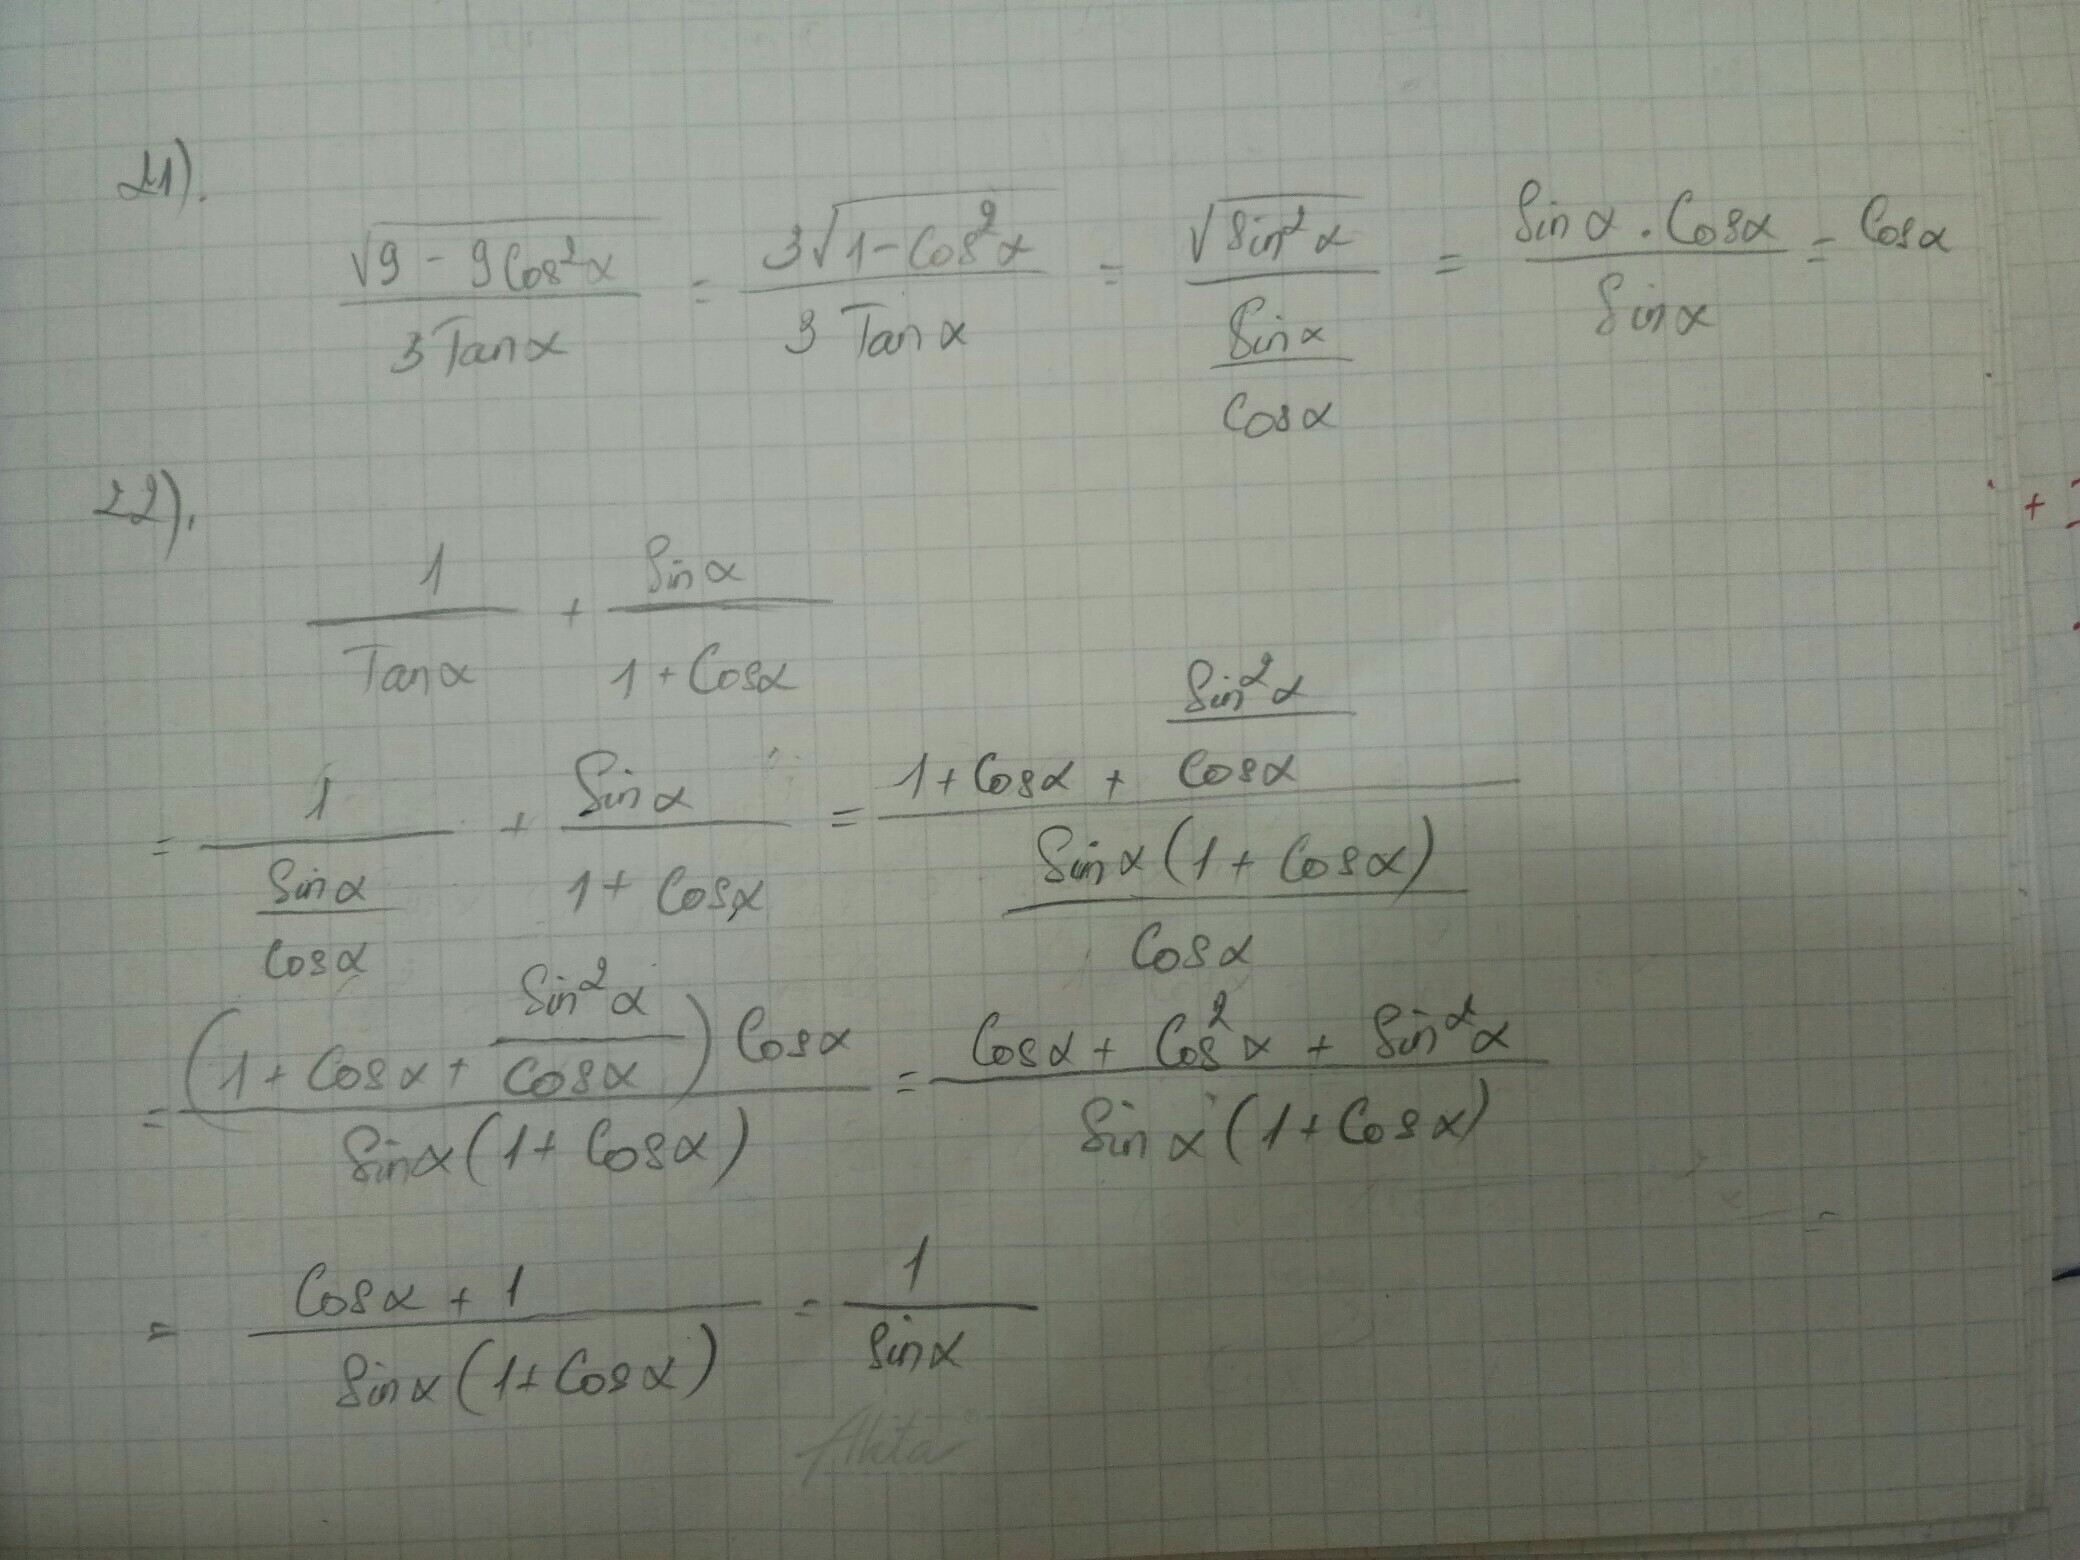 21).
√9 - 9Cos²α / 3Tanα = 3√1-Cos²α / 3 Tanα = √Sin²α / Sinα / Cosα = Sinα . Cosα / Sinα = Cosα
22).
1 / Tanα + Sinα / 1 + Cosα
= 1 / Sinα / Cosα + Sinα / 1 + Cosα = 1 + Cosα + Sin²α / Cosα / Sinα (1 + Cosα) / Cosα
= (1 + Cosα + Sin²α / Cosα) Cosα / Sinα (1 + Cosα) = Cosα + Cos²α + Sin²α / Sinα (1 + Cosα)
=
= Cosα + 1 / Sinα (1 + Cosα) = 1 / Sinα
+